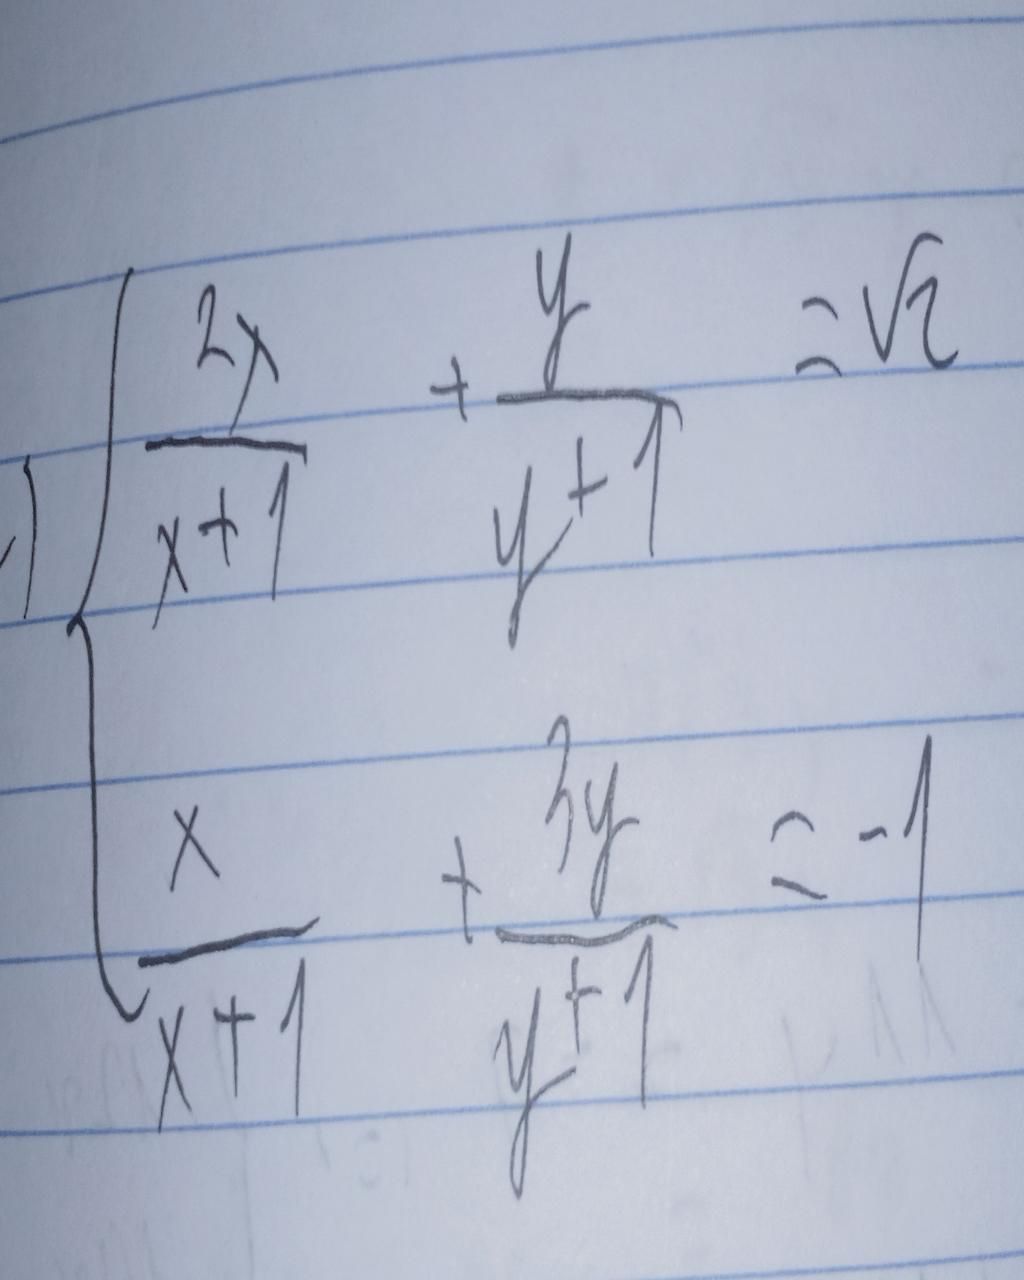 2x/(x+1) + y/(y+1) = √2
x/(x+1) + 3y/(y+1) = -1